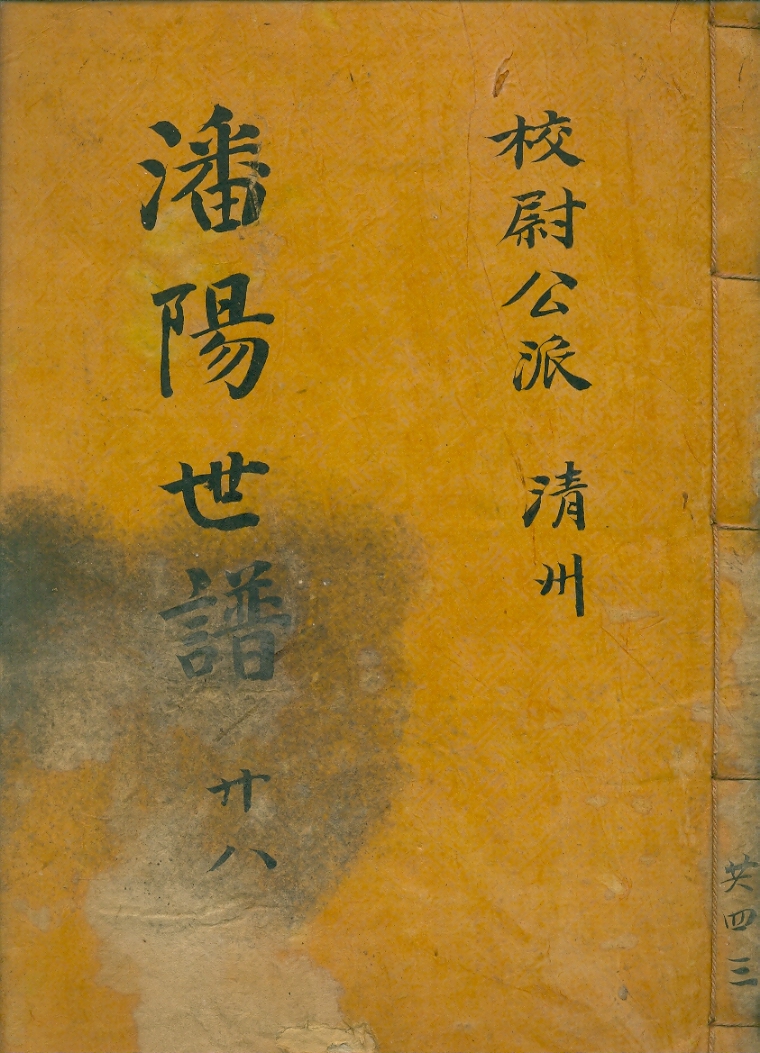 共四三
校尉公派 清州
潘陽世譜 卄八